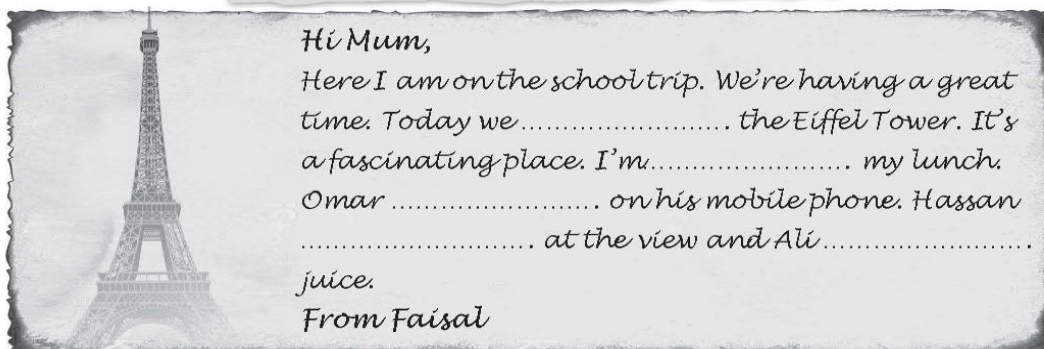 Hi Mum,
Here I am on the school trip. We're having a great
time. Today we ........................ the Eiffel Tower. It's
a fascinating place. I'm........................ my lunch.
Omar ........................ on his mobile phone. Hassan
........................... at the view and Ali........................
juice.
From Faisal